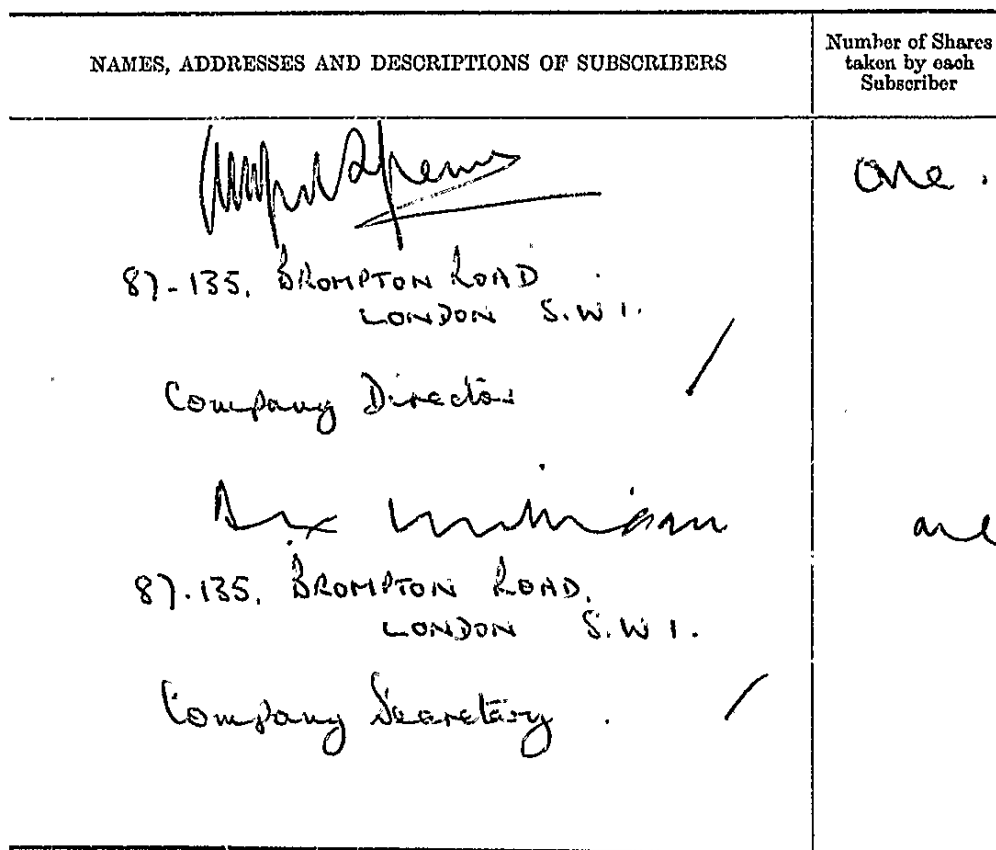 NAMES, ADDRESSES AND DESCRIPTIONS OF SUBSCRIBERS
Number of Shares
taken by each
Subscriber
One.
87-135, BROMPTON ROAD
LONDON S.W1.
Company Director
one
87-135, BROMPTON ROAD.
LONDON S.W1.
Company Secretary.